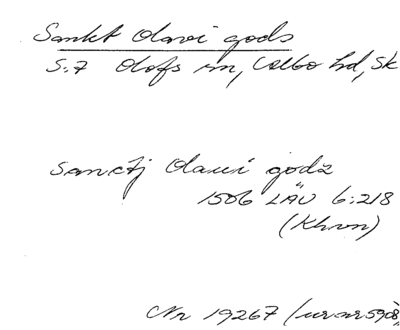 Sankt Olavi gods
S:7 Olofs sn, Albo hd, Sk
Sanctj Olaui godz
1506 LÄU 6:218
(Khvn)
Nr 19267